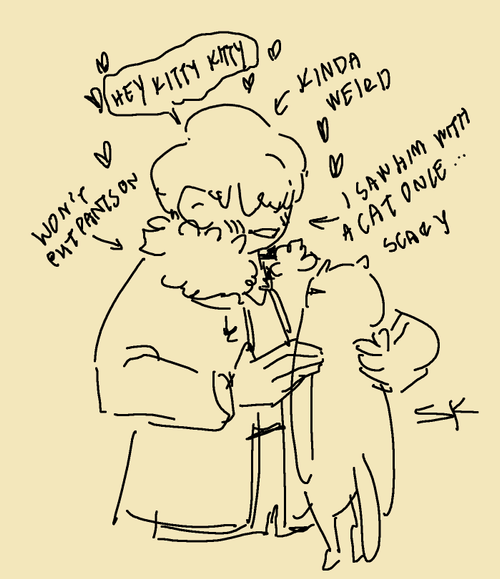 HEY KITTY KITTY
KINDA
WEIRD
WON'T
PUT PANTS ON
I SAW HIM WITH
A CAT ONCE...
SCARY
SK